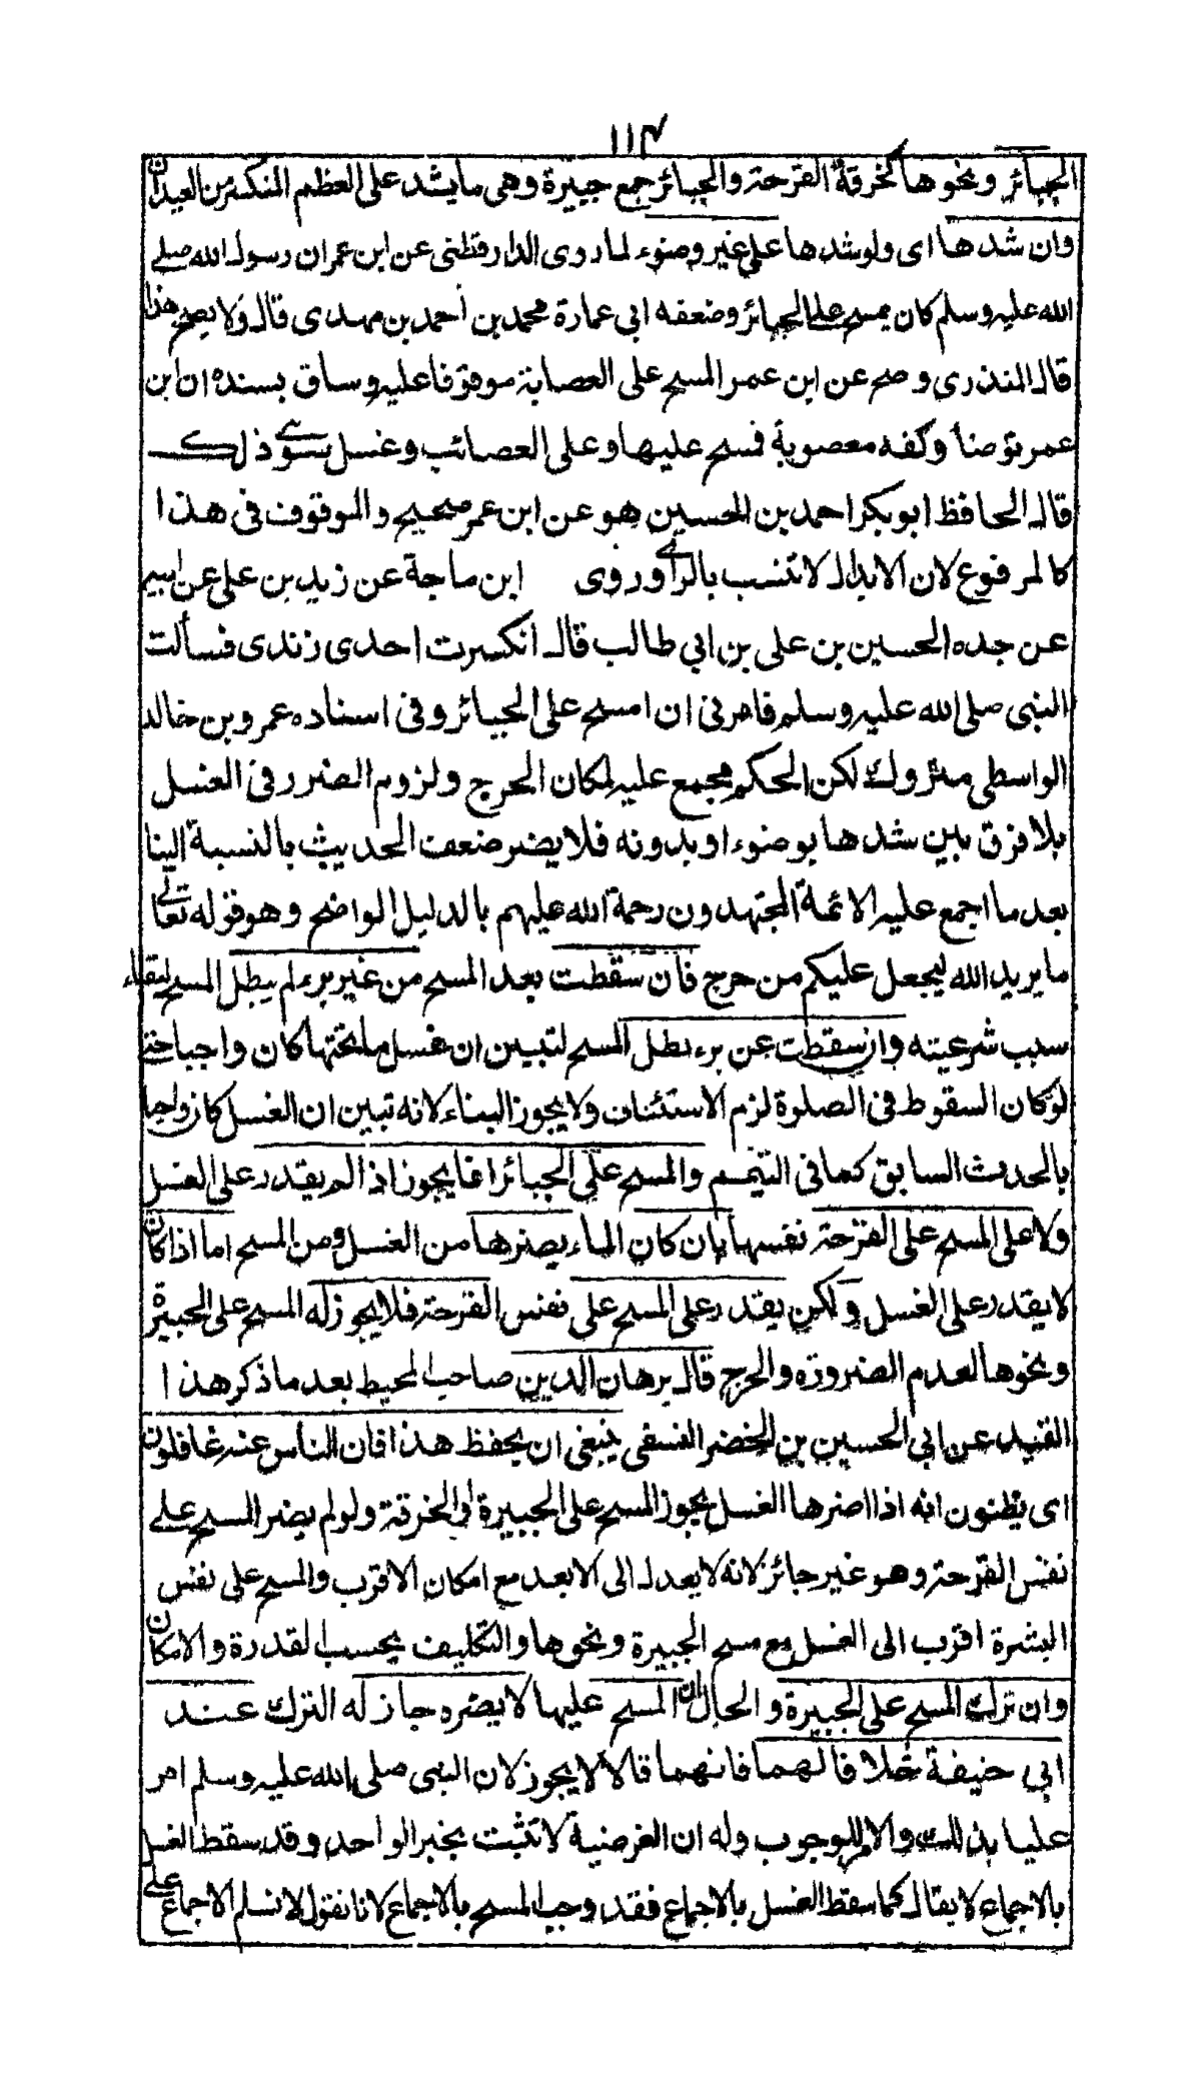 ١١٣
الجبائر ونحوها كخرقة القرحة والجبائر جمع جبيرة وهى ما يشد على العظم المنكسر من العيدان
وان شدها اى ولو شدها على غير وضوء لما روى الدارقطنى عن ابن عمر ان رسول الله صلے
الله عليه وسلم كان يمسح على الجبائر وضعفه ابي عمارة محمد بن أحمد بن مهدى قال ولا يصح هذا
قال المنذرى وصح عن ابن عمر المسح على العصابة موقوفا عليه وساق بسنده ان ابن
عمر توضأ وكفه معصوبة فمسح عليها وعلى العصائب وغسل سوے ذلك
قال الحافظ ابو بكر احمد بن الحسين هو عن ابن عمر صحيح والموقوف فى هذا
كالمرفوع لان الابدال لا تنسب بالراے وروى ابن ماجة عن زيد بن على عن ابيه
عن جده الحسين بن على بن ابي طالب قال انكسرت احدى زندى فسألت
النبى صلى الله عليه وسلم فامرنى ان امسح على الجبائر وفى اسناده عمرو بن خالد
الواسطى متروك لكن الحكم مجمع عليه لمكان الحرج ولزوم الضرر فى الغسل
بلا فرق بين شدها بوضوء او بدونه فلا يضر ضعف الحديث بالنسبة الينا
بعد ما اجمع عليه الائمة المجتهدون رحمة الله عليهم بالدليل الواضح وهو قوله تعالے
ما يريد الله ليجعل عليكم من حرج فان سقطت بعد المسح من غير برء لم يبطل المسح لبقاء
سبب شرعيته وان سقطت عن برء بطل المسح لتبين ان غسل ما تحتها كان واجبا حتے
لو كان السقوط فى الصلوة لزم الاستئناف ولا يجوز البناء لانه تبين ان الغسل كان واجبا
بالحدث السابق كما فى التيمم والمسح على الجبائر انما يجوز اذا لم يقدر على الغسل
ولا على المسح على القرحة نفسها بان كان الماء يضرها من الغسل ومن المسح اما اذا كان
لا يقدر على الغسل ولكن يقدر على المسح على نفس القرحة فلا يجوز له المسح على الجبيرة
ونحوها لعدم الضرورة والحرج قال برهان الدين صاحب المحيط بعد ما ذكر هذا
القيد عن ابي الحسين بن الخضر النسفى ينبغى ان يحفظ هذا فان الناس عنه غافلون
اى يظنون انه اذا اضرها الغسل يجوز المسح على الجبيرة او الخرقة ولو لم يضر المسح علے
نفس القرحة وهو غير جائز لانه لا يعدل الى الابعد مع امكان الاقرب والمسح على نفس
البشرة اقرب الى الغسل مع مسح الجبيرة ونحوها والتكليف بحسب القدرة والامكان
وان ترك المسح على الجبيرة والحال ان المسح عليها لا يضره جاز له الترك عند
ابي حنيفة خلافا لهما فانهما قالا لا يجوز لان النبى صلى الله عليه وسلم امر
عليا بذلك والامر للوجوب وله ان الفرضية لا تثبت بخبر الواحد وقد سقط الغسل
بالاجماع لا يقال كما سقط الغسل بالاجماع فقد وجب المسح بالاجماع لانا نقول لا نسلم الاجماع علے